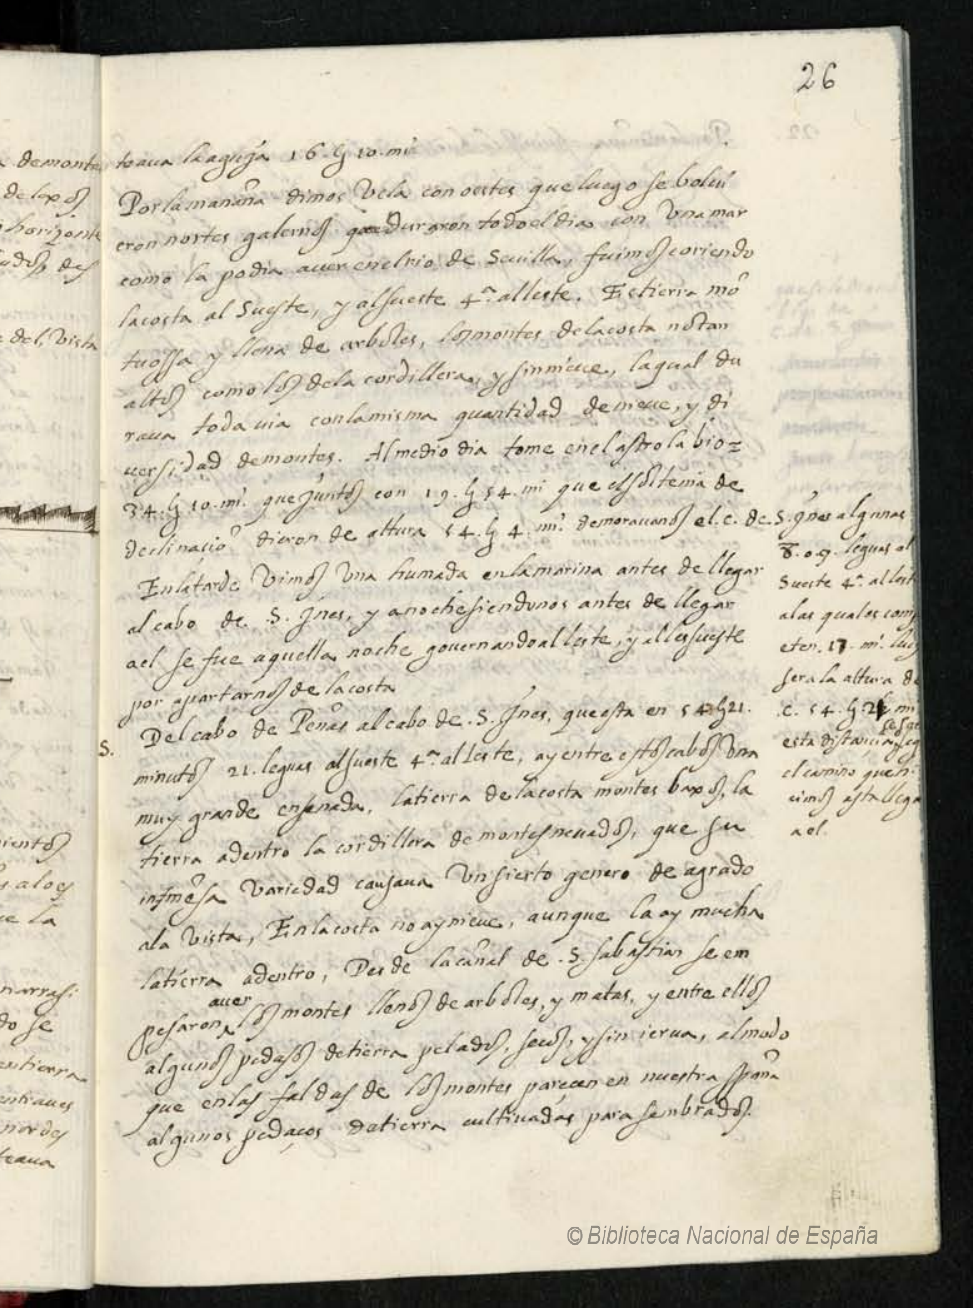 26
teaua la aguja 16. g 10. mi.
Por la mañana dimos vela con oestes que luego se bolui
eron nortes galernos que duraron todo el dia con vna mar
como la podia auer en el rio de Seuilla, fuimos coriendo
la costa al Sueste, y al sueste 4.ª al leste. Es tierra mõ
tuossa y llena de arboles, los montes de la costa no tan
altos como los de la cordillera, y sin nieue, la qual du
raua toda uia con la misma quantidad de nieue, y di
uersidad de montes. Al medio dia tome en el astrolabio =
34. g 10. mi. que juntos con 19. g 54. mi que el sol tenia de
declinasiõ dieron de altura 54. g 4. mi. demorauanos el. c. de. S. ynes algunas
8. o 9. leguas al
Sueste 4.ª al lest
a las quales com
eten. 17. mi. lue
sera la altura de
.c. 54. g 21 mi
esta distancia seg
el camino que hi
cimos asta llega
a el.
En la tarde vimos vna humada en la marina antes de llegar
al cabo de .S. Ynes, y anochesiendonos antes de llegar
a el se fue aquella noche gouernando al leste, y al lessueste
por apartarnos de la costa
S.
Del cabo de Peñas al cabo de .S. Ynes, que esta en 54 g 21.
minutos 21. leguas al sueste 4.ª al leste, ay entre estos cabos vna
muy grande ensenada, la tierra de la costa montes baxos, la
tierra adentro la cordillera de montes neuados, que su
inmẽsa variedad causaua vn sierto genero de agrado
a la vista, En la costa no ay nieue, aunque la ay mucha
la tierra adentro, Desde la canal de .S. sabastian se em
pesaron auer los montes llenos de arboles, y matas, y entre ellos
algunos pedasos de tierra pelados, secos, y sin ierua, al modo
que en las faldas de los montes parecen en nuestra españa
algunos pedaços de tierra cultiuadas para sembrados.
© Biblioteca Nacional de España